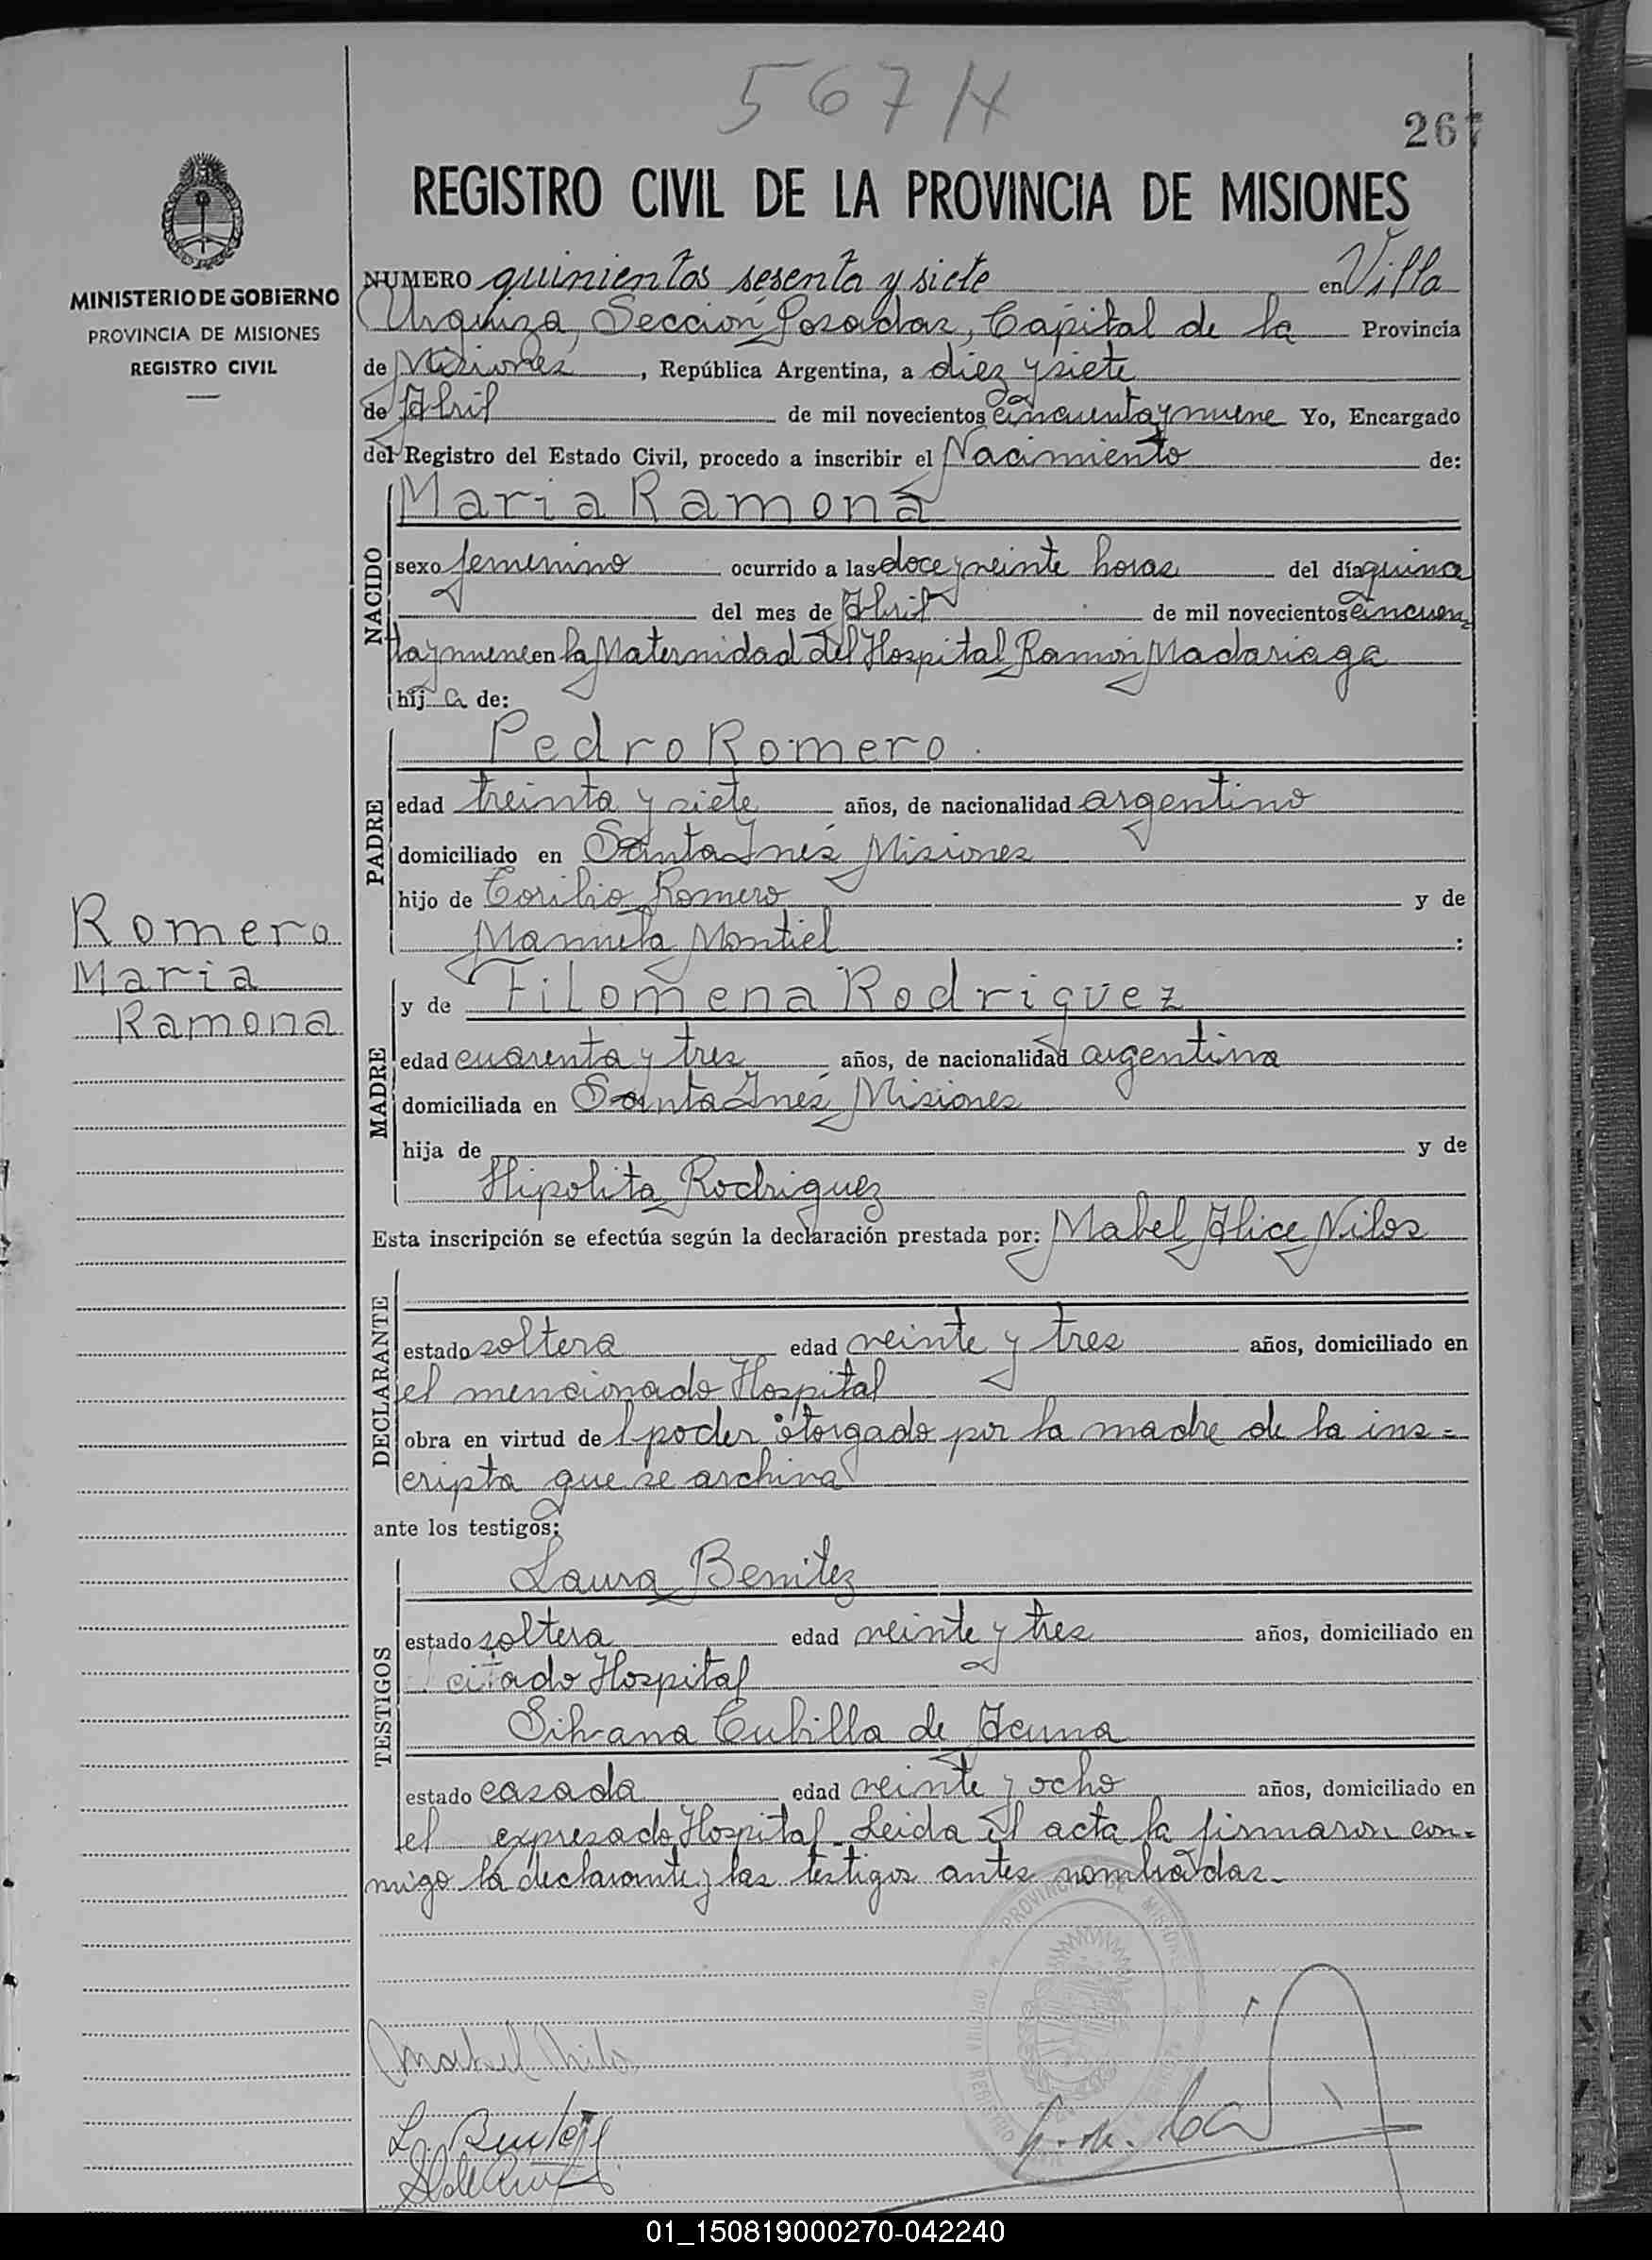 567/4
267
MINISTERIO DE GOBIERNO
PROVINCIA DE MISIONES
REGISTRO CIVIL
REGISTRO CIVIL DE LA PROVINCIA DE MISIONES
NUMERO quinientos sesenta y siete en Villa
Urquiza, Sección Posadas, Capital de la Provincia
de Misiones, República Argentina, a diez y siete
de Abril de mil novecientos cincuenta y nueve Yo, Encargado
del Registro del Estado Civil, procedo a inscribir el Nacimiento de:
NACIDO
Maria Ramona
sexo femenino ocurrido a las doce y veinte horas del día quince
del mes de Abril de mil novecientos cincuen
ta y nueve en la Maternidad del Hospital Ramón Madariaga
hij a de:
PADRE
Pedro Romero
edad treinta y siete años, de nacionalidad argentino
domiciliado en Santa Inés, Misiones
hijo de Torilio Romero y de
Manuela Montiel :
Romero
Maria
Ramona
MADRE
y de Filomena Rodriguez
edad cuarenta y tres años, de nacionalidad argentina
domiciliada en Santa Inés, Misiones
hija de y de
Hipolita Rodriguez
Esta inscripción se efectúa según la declaración prestada por: Mabel Alice Nilos
DECLARANTE
estado soltera edad veinte y tres años, domiciliado en
el mencionado Hospital
obra en virtud de l poder otorgado por la madre de la ins=
cripta que se archiva
ante los testigos:
TESTIGOS
Laura Benitez
estado soltera edad veinte y tres años, domiciliado en
citado Hospital
Silvana Cubilla de Acuna
estado casada edad veinte y ocho años, domiciliado en
el expresado Hospital. Leida el acta la firmaron con=
migo la declarante y las testigos antes nombradas.
PROVINCIA DE MISIONES
Mabel Nilos
L. Benitez
01_150819000270-042240